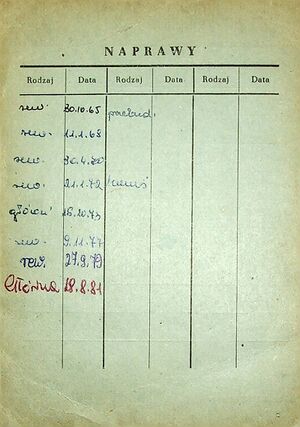 NAPRAWY
Rodzaj Data Rodzaj Data Rodzaj Data
rew. 30.10.65
rew. 11.1.68
rew.
rew. 21.1.72
główn. 16.10.73
rew. 9.11.77
rew. 27.9.79
Główna 18.8.81